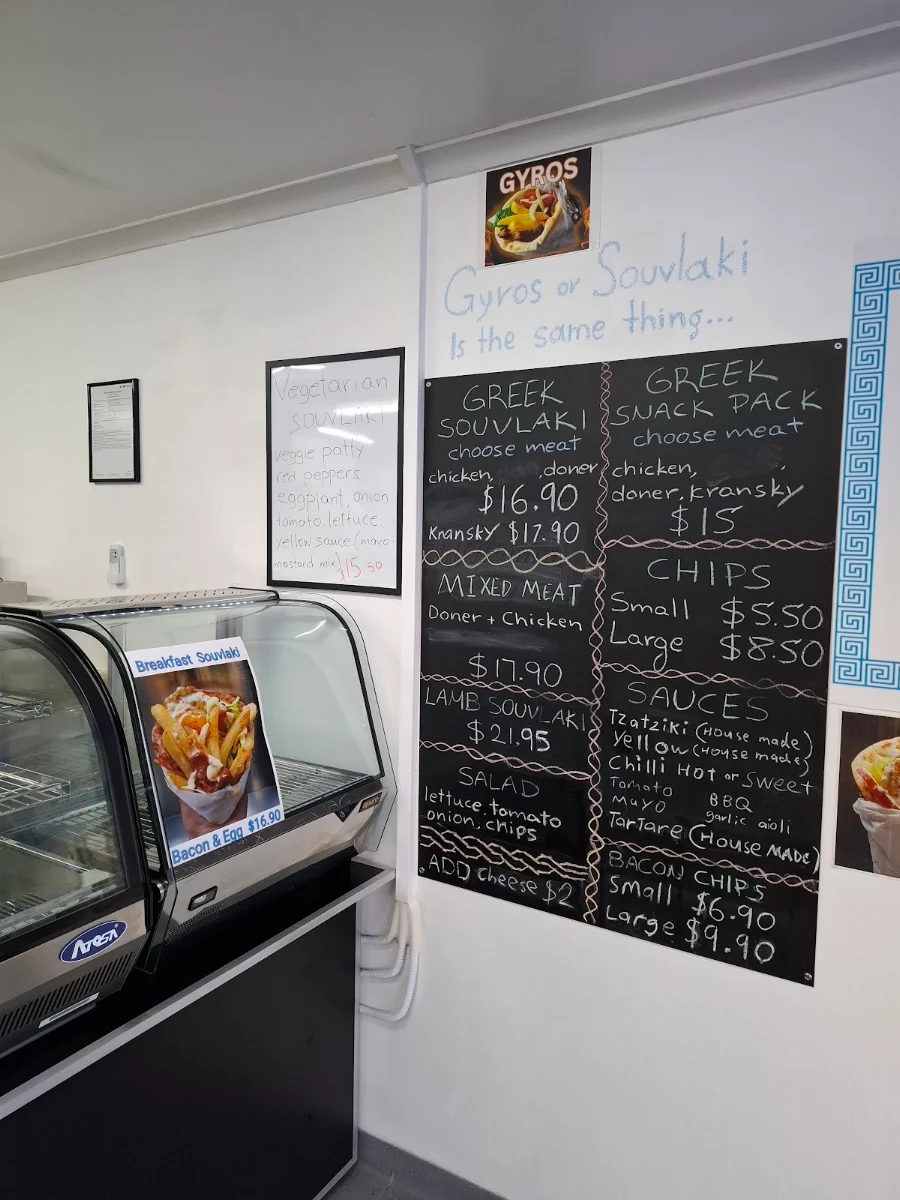 GYROS
Gyros or Souvlaki
Is the same thing...
Vegetarian
SOUVLAKI
veggie patty
red peppers
eggplant, onion
tomato. lettuce
yellow sauce (mayo-
mustard mix) $15.50
GREEK
SOUVLAKI
choose meat
chicken, , doner
$16.90
Kransky $17.90
MIXED MEAT
Doner + Chicken
$17.90
LAMB SOUVLAKI
$21.95
SALAD
lettuce. tomato
onion. chips
ADD cheese $2
GREEK
SNACK PACK
choose meat
chicken,
doner. kransky
$15
CHIPS
Small $5.50
Large $8.50
SAUCES
Tzatziki (House made)
Yellow (House made)
Chilli Hot or Sweet
Tomato BBQ
Mayo garlic aioli
Tartare (House MADE)
BACON CHIPS
Small $6.90
Large $9.90
Breakfast Souvlaki
Bacon & Egg $16.90
Atosa